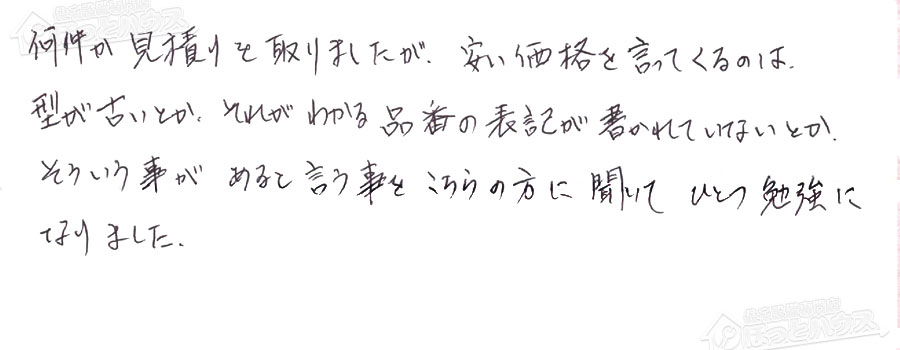 何件か見積りを取りましたが、安い価格を言ってくるのは、
型が古いとか、それがわかる品番の表記が書かれていないとか、
そういう事があると言う事をこちらの方に聞いてひとつ勉強に
なりました。
ほっとハウス